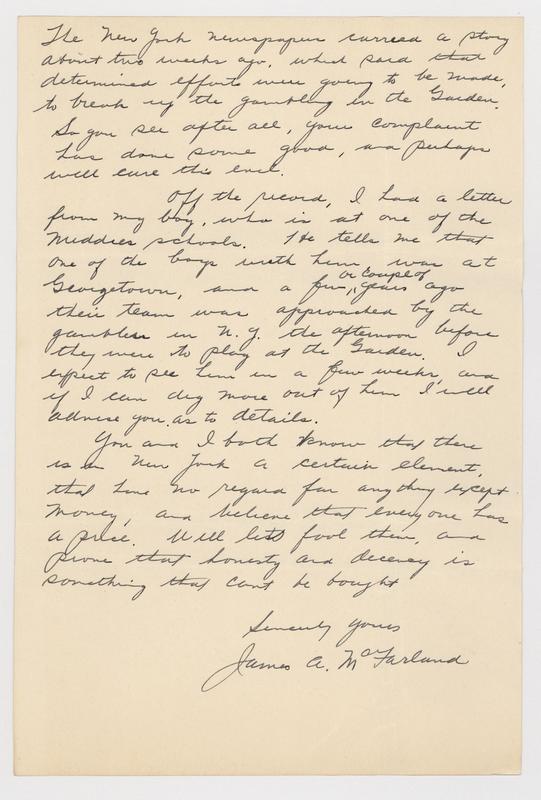 The New York newspapers carried a story
about two weeks ago, which said that
determined efforts were going to be made,
to break up the gambling in the Garden.
So you see after all, your complaint
has done some good, and perhaps
will cure this evil.
Off the record, I had a letter
from my boy, who is at one of the
Middies schools. He tells me that
one of the boys with him, was at
or couple of
Georgetown, and a few, years ago
their team was approached by the
gamblers in N.Y. the afternoon before
they were to play at the Garden. I
expect to see him in a few weeks, and
if I can dig more out of him I will
advise you as to details.
You and I both know that there
is in New York a certain element,
that have no regard for anything except
money, and believe that everyone has
a price. Well lets fool them, and
prove that honesty and decency is
something that cant be bought
Sincerely yours
James A. McFarland